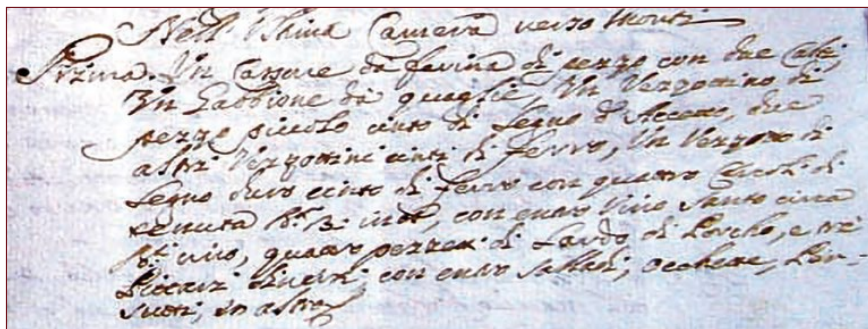 Nell'Ultima Camera verso Monti
Prima. Un Cassone da farina di pezzo con due Calti,
Un Gabbione da quaglie, Un Vezzottino di
pezzo piccolo cinto di Legno d'Accero, due
altri Vezzottini cinti di ferro, Un Vezzotto di
Legno duro cinto di ferro con quattro Cerchi di
tenuta con entro Vino Santo circa
uno, quattro pezze di Lardo di Porcho, e tre
diversi, con entro
in altro